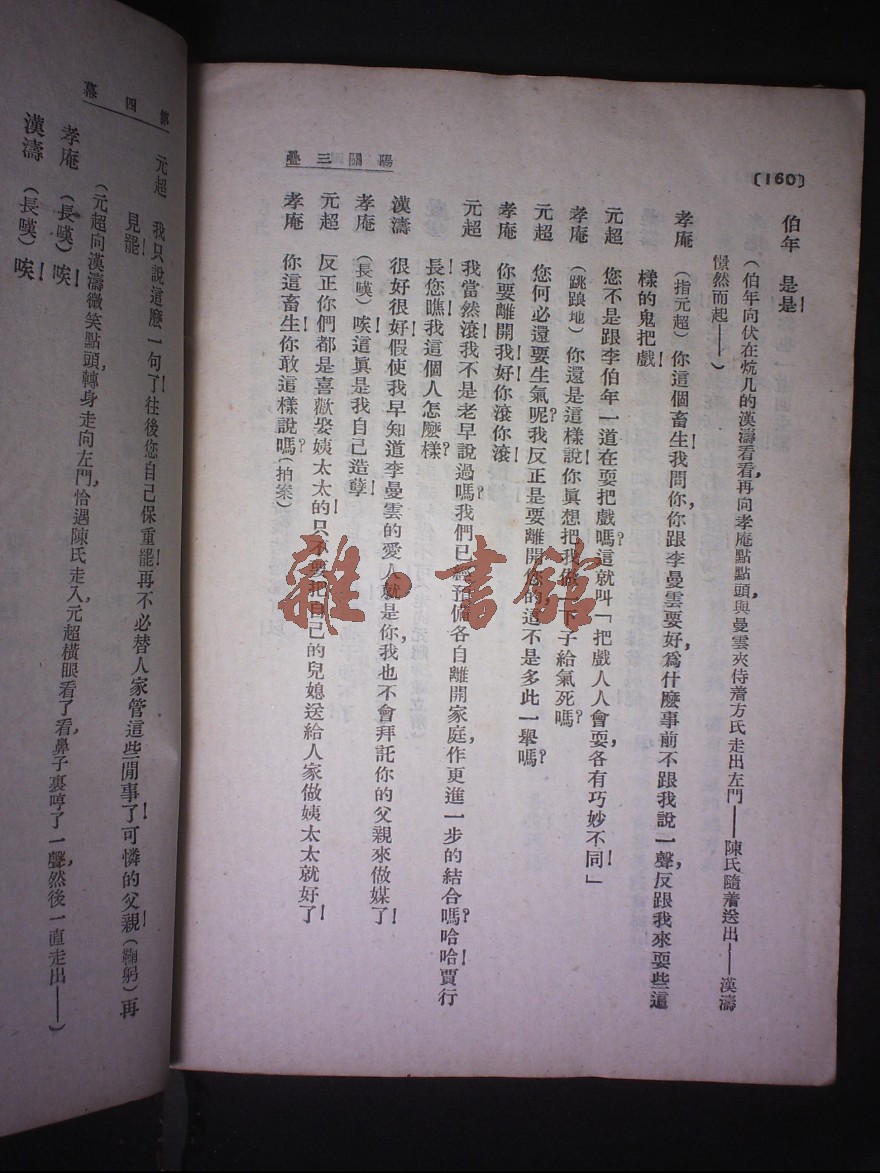 (160)
陽關三疊
伯年　是!是!
（伯年向伏在炕几的漢濤看看,再向孝庵點點頭,與曼雲夾侍着方氏走出左門——陳氏隨着送出——漢濤
憬然而起——）
孝庵　（指元超）你這個畜生!我問你,你跟李曼雲要好,爲什麽事前不跟我說一聲,反跟我來耍些這
樣的鬼把戲!
元超　您不是跟李伯年一道在耍把戲嗎?這就叫「把戲人人會耍,各有巧妙不同!」
孝庵　（跳踉地）你還是這樣說!你眞想把我做一下子給氣死嗎?
元超　您何必還要生氣呢?我反正是要離開您的,這不是多此一舉嗎?
孝庵　你要離開我!好!你滾!你滾!
元超　我當然滾!我不是老早說過嗎?我們已經預備各自離開家庭,作更進一步的結合嗎?哈哈!賈行
長!您瞧我這個人怎麽樣?
漢濤　很好!很好!假使我早知道李曼雲的愛人就是你,我也不會拜託你的父親來做媒了!
孝庵　（長嘆）唉!這眞是我自己造孽!
元超　反正你們都是喜歡娶姨太太的!只不要把自己的兒媳送給人家做姨太太就好了!
孝庵　你這畜生!你敢這樣說嗎?（拍案）
第四幕
元超　我只說這麽一句了!往後您自己保重罷!再不必替人家管這些閒事了!可憐的父親!（鞠躬）再
見罷!
（元超向漢濤微笑點頭,轉身走向左門,恰遇陳氏走入,元超橫眼看了看,鼻子裏哼了一聲,然後一直走出——）
孝庵　（長嘆）唉!
漢濤　（長嘆）唉!
雜·書館